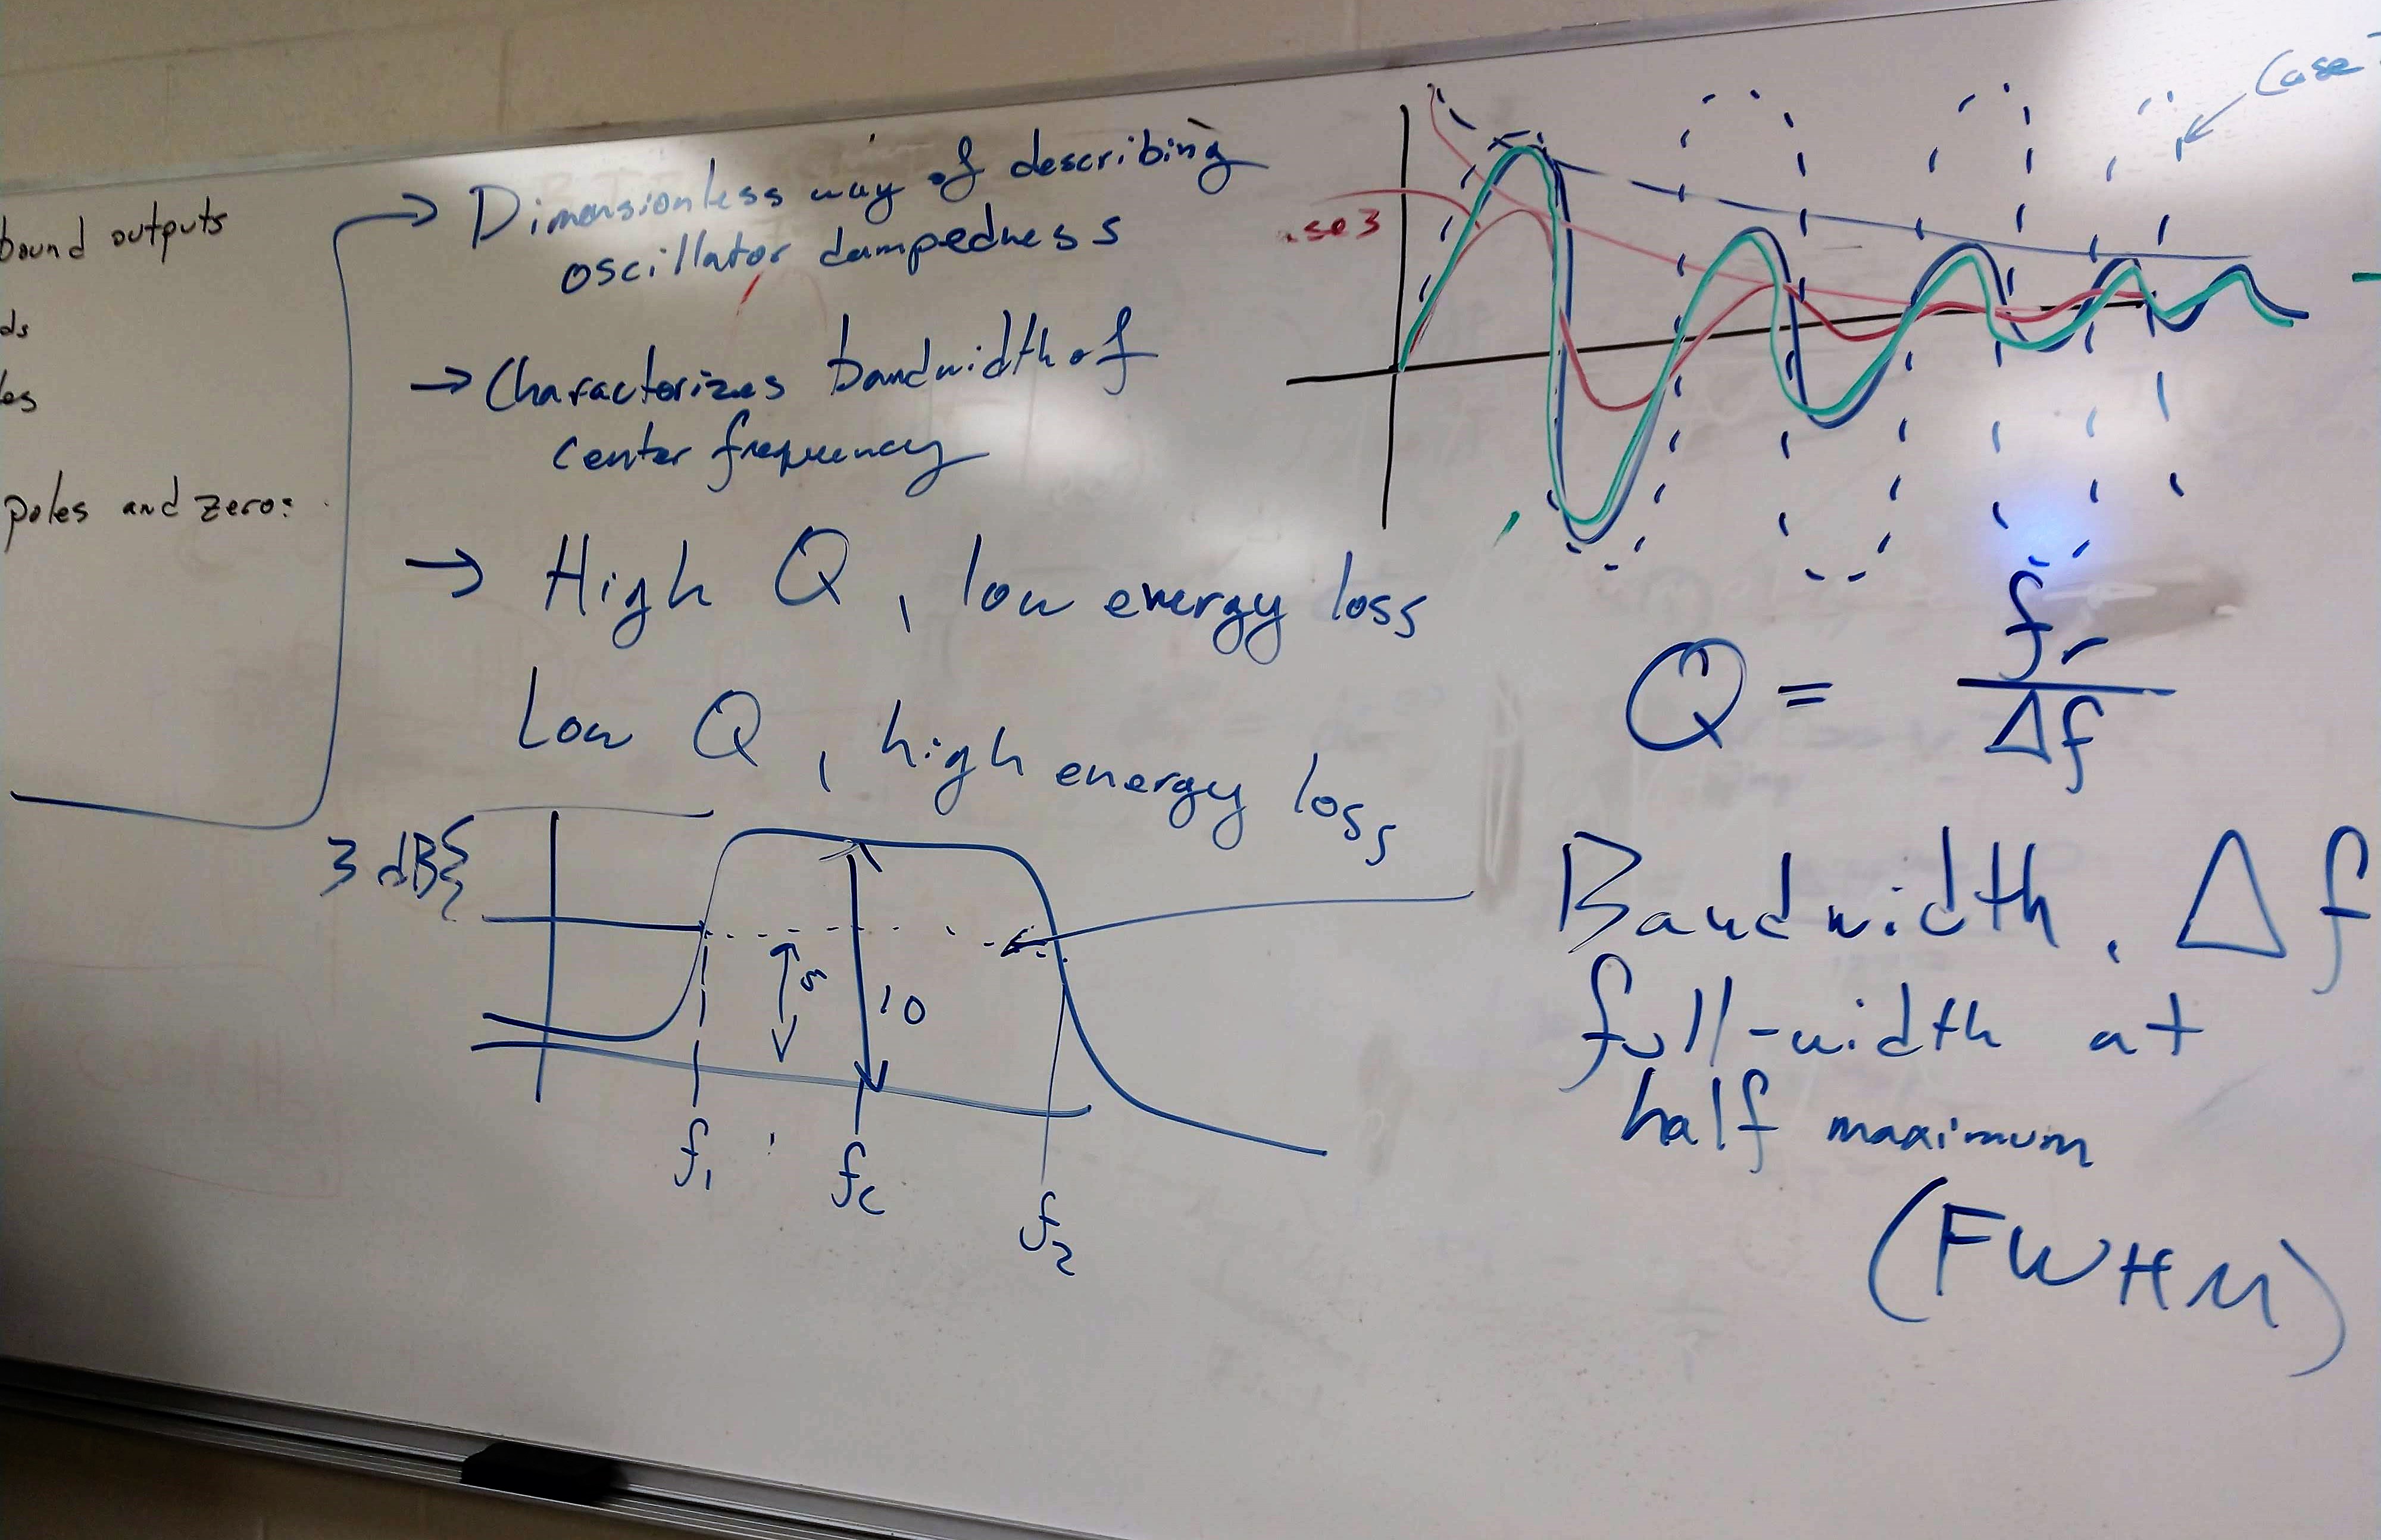 bound outputs
ds
es
poles and zero:
→ Dimensionless way of describing
oscillator dampedness
→ Characterizes bandwidth of
center frequency
→ High Q, low energy loss
Low Q, high energy loss
3 dB
5
10
f₁
fc
f₂
Case
se3
Q = fr / Δf
Bandwidth, Δf
full-width at
half maximum
(FWHM)